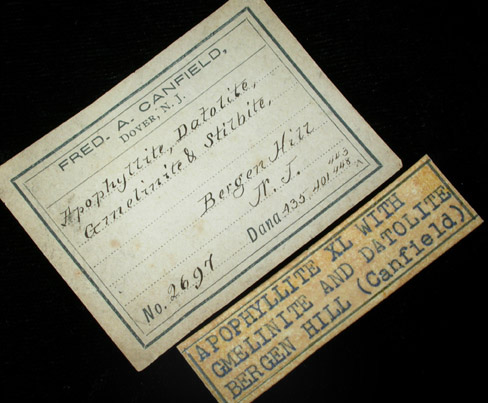 FRED. A. CANFIELD,
DOVER, N. J.
Apophyllite, Datolite,
Gmelinite & Stilbite,
Bergen Hill
N. J.
No. 2697 Dana 435, 401, 448
443
APOPHYLLITE XL WITH
GMELINITE AND DATOLITE
BERGEN HILL (Canfield)